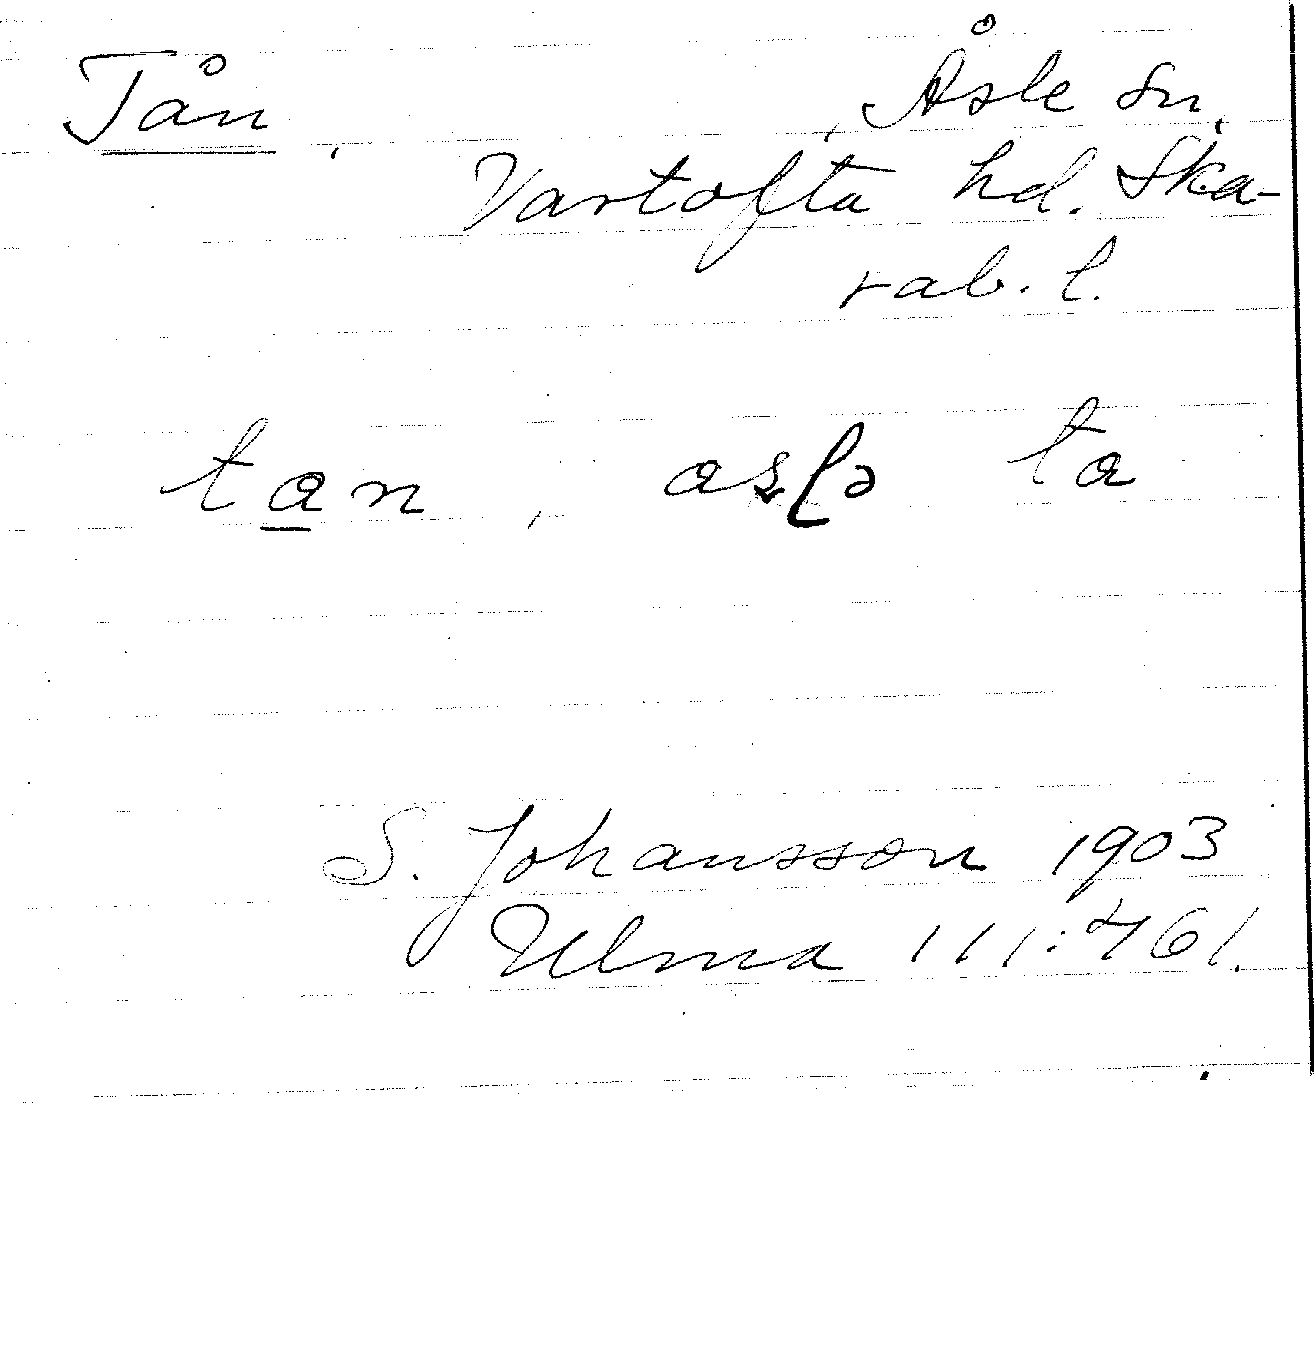 Tån, Åsle sn,
Vartofta hd. Ska-
rab. l.
tan, aslə ta
S. Johansson 1903
Ulma 111:461.